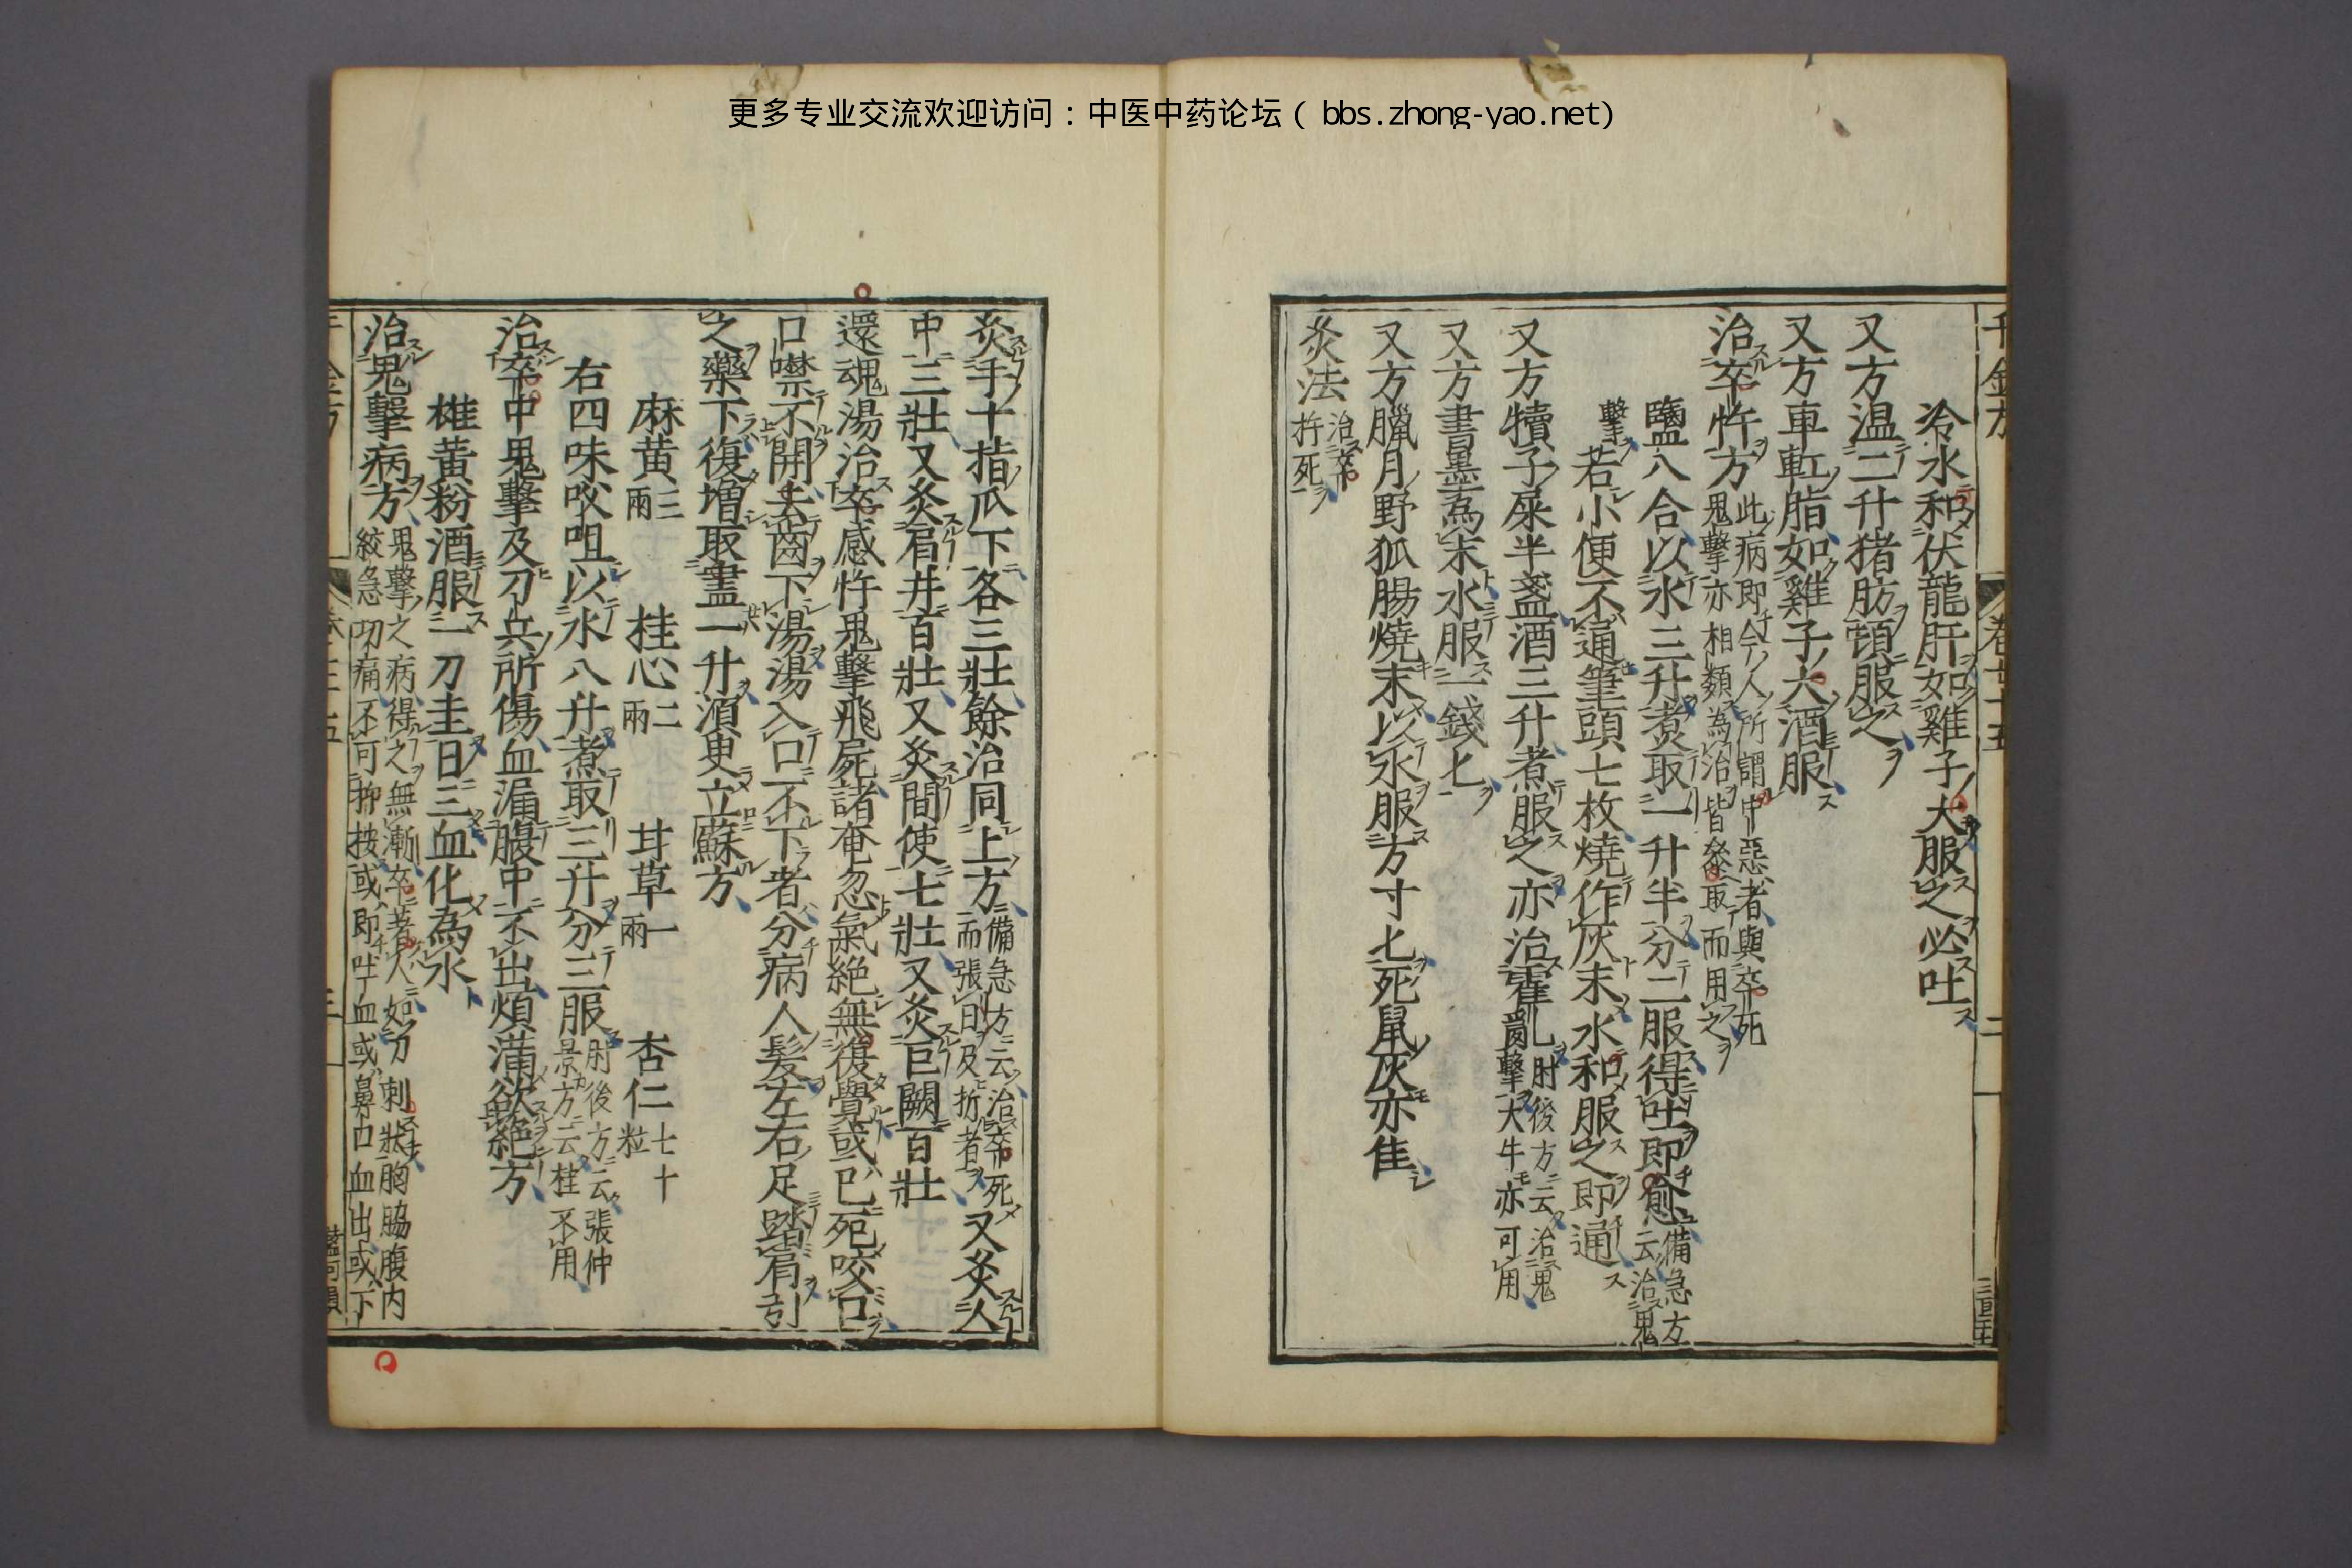 更多专业交流欢迎访问：中医中药论坛（bbs.zhong-yao.net）
冷水和伏龍肝如雞子大服之必吐
又方温二升猪肪頓服之
又方車軭脂如雞子大酒服
治卒忤方此病即今人所謂中惡者與卒死
鬼擊亦相類為治皆參取而用之
鹽八合以水三升煮取一升半分二服得吐即愈備急方
云治鬼
擊若小便不通筆頭七枚燒作灰末水和服之即通
又方犢子屎半盞酒三升煮服之亦治霍亂肘後方云治鬼
擊大牛亦可用
又方書墨為末水服一錢匕
又方臘月野狐腸燒末以水服方寸匕死鼠灰亦佳
灸法治卒
忤死
灸手十指爪下各三壯餘治同上方備急方云治卒死
而張目及折者又灸人
中三壯又灸肩井百壯又灸間使七壯又灸巨闕百壯
還魂湯治卒感忤鬼擊飛屍諸奄忽氣絶無復覺或已死咬口
口噤不開去齒下湯湯入口不下者分病人髮左右足踏肩引
之藥下復增取盡一升須臾立蘇方
麻黄三兩 桂心二兩 甘草一兩 杏仁七十粒
右四味㕮咀以水八升煮取三升分三服肘後方云張仲
景方云桂不用
治卒中鬼擊及刀兵所傷血漏腹中不出煩滿欲絶方
雄黄粉酒服一刀圭日三血化為水
治鬼擊病方鬼擊之病得之無漸卒著人如刀刺狀胸脇腹内
絞急切痛不可抑按或即吐血或鼻口血出或下